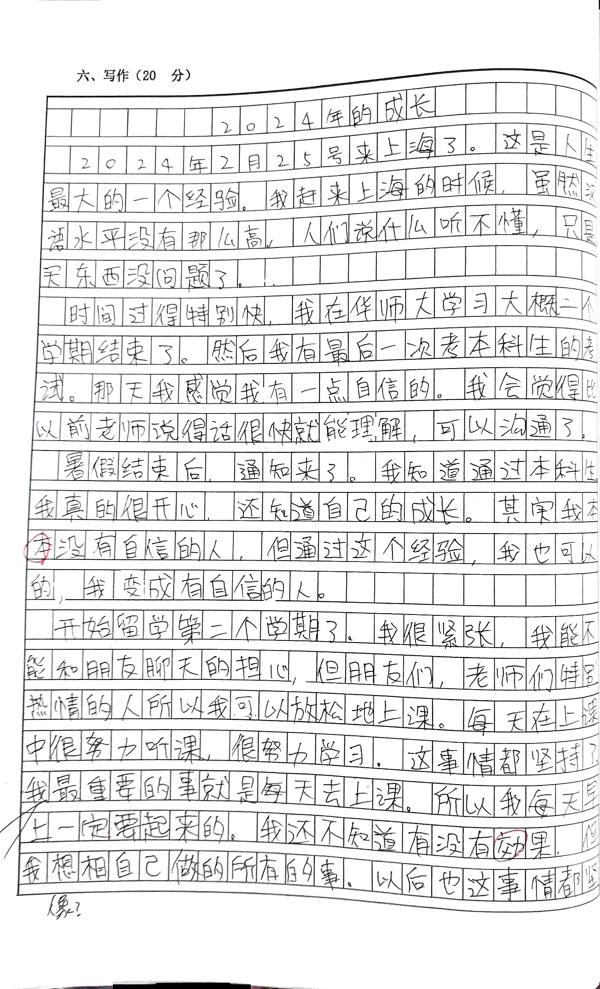 六、写作（20 分）
2024年的成长
2024年2月25号来上海了。这是人生
最大的一个经验。我赶来上海的时候，虽然汉
语水平没有那么高，人们说什么听不懂，只是
买东西没问题了。
时间过得特别快，我在华师大学习大概二个
学期结束了。然后我有最后一次考本科生的考
试。那天我感觉我有一点自信的。我会觉得比
以前老师说得话很快就能理解，可以沟通了。
暑假结束后，通知来了。我知道通过本科生
我真的很开心，还知道自己的成长。其实我本
本没有自信的人，但通过这个经验，我也可以
的，我变成有自信的人。
开始留学第二个学期了。我很紧张，我能不
能和朋友聊天的担心，但朋友们，老师们特别
热情的人所以我可以放松地上课。每天在上课
中很努力听课，很努力学习。这事情都坚持了
我最重要的事就是每天去上课。所以我每天早
上一定要起来的。我还不知道有没有效果，但
我想相自己做的所有的事。以后也这事情都坚
像？